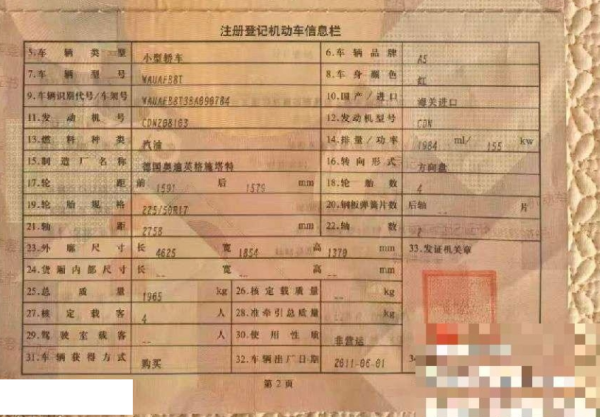 注册登记机动车信息栏
5.车辆类型 小型轿车 6.车辆品牌 A5
7.车辆型号 WAUAFB8T 8.车身颜色 红
9.车辆识别代号/车架号 10.国产/进口 海关进口
11.发动机号 12.发动机型号 CDN
13.燃料种类 汽油 14.排量/功率 1984 ml/ 155 kw
15.制造厂名称 德国奥迪英格施塔特 16.转向形式 方向盘
17.轮距 前 1591 后 1579 mm 18.轮胎数 4
19.轮胎规格 225/50R17 20.钢板弹簧片数 后轴 -- 片
21.轴距 2758 mm 22.轴数 2
23.外廓尺寸 长 4625 宽 1854 高 1379 mm 33.发证机关章
24.货厢内部尺寸 长 -- 宽 -- 高 -- mm
25.总质量 1965 kg 26.核定载质量 -- kg
27.核定载客 4 人 28.准牵引总质量 -- kg
29.驾驶室载客 -- 人 30.使用性质 非营运
31.车辆获得方式 购买 32.车辆出厂日期 2011-06-01
第2页